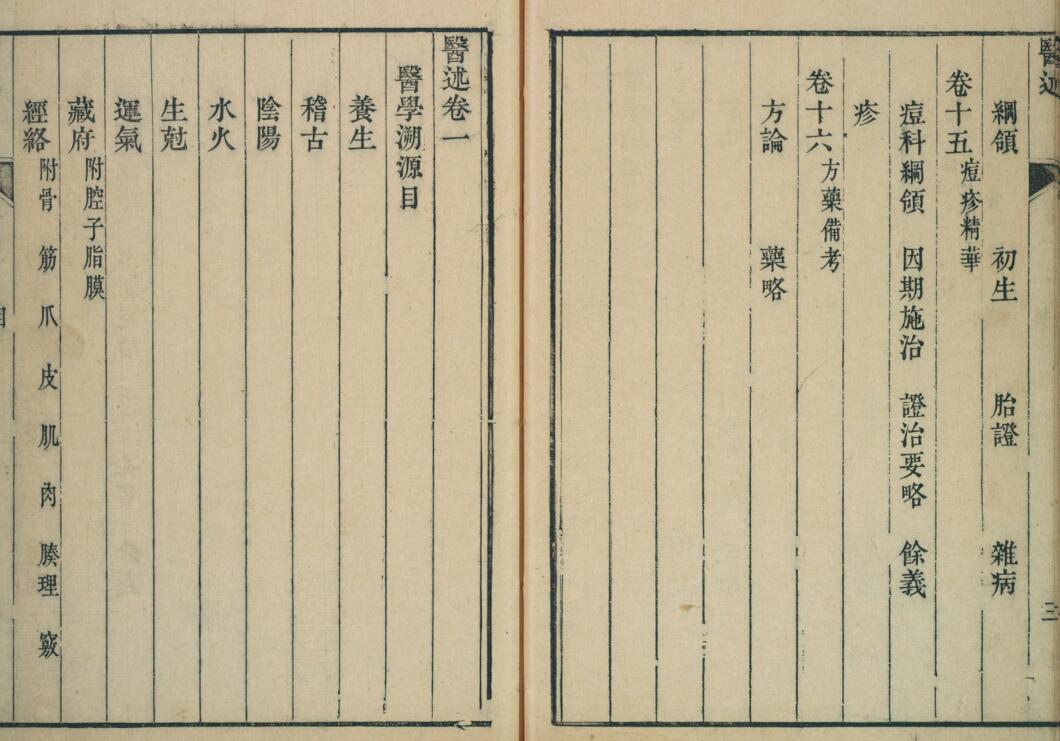 醫述
三
綱領　初生　胎證　雜病
卷十五 痘疹精華
痘科綱領　因期施治　證治要略　餘義
疹
卷十六 方藥備考
方論　藥略
醫述卷一
醫學溯源目
養生
稽古
陰陽
水火
生尅
運氣
藏府 附腔子脂膜
經絡 附骨　筋　爪　皮　肌　肉　腠理　竅
目